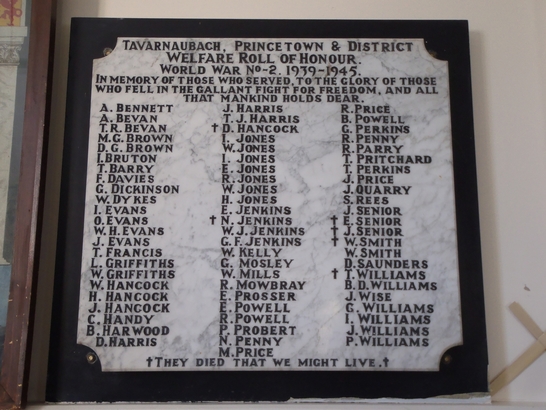 TAVARNAUBACH, PRINCETOWN & DISTRICT
WELFARE ROLL OF HONOUR.
WORLD WAR No-2. 1939-1945.
IN MEMORY OF THOSE WHO SERVED, TO THE GLORY OF THOSE
WHO FELL IN THE GALLANT FIGHT FOR FREEDOM, AND ALL
THAT MANKIND HOLDS DEAR.
A. BENNETT
A. BEVAN
T.R. BEVAN
M.G. BROWN
D.G. BROWN
I. BRUTON
T. BARRY
F. DAVIES
G. DICKINSON
W. DYKES
I. EVANS
O. EVANS
W.H. EVANS
J. EVANS
T. FRANCIS
L. GRIFFITHS
W. GRIFFITHS
W. HANCOCK
H. HANCOCK
J. HANCOCK
C. HANDY
B. HARWOOD
D. HARRIS
J. HARRIS
T.J. HARRIS
†D. HANCOCK
I. JONES
W. JONES
I. JONES
E. JONES
R. JONES
W. JONES
H. JONES
E. JENKINS
†N. JENKINS
W.J. JENKINS
G.F. JENKINS
W. KELLY
G. MOSLEY
W. MILLS
R. MOWBRAY
E. PROSSER
E. POWELL
R. POWELL
P. PROBERT
N. PENNY
M. PRICE
R. PRICE
B. POWELL
G. PERKINS
R. PENNY
R. PARRY
T. PRITCHARD
T. PERKINS
J. PRICE
J. QUARRY
S. REES
J. SENIOR
†E. SENIOR
†J. SENIOR
†W. SMITH
W. SMITH
D. SAUNDERS
†T. WILLIAMS
B.D. WILLIAMS
J. WISE
G. WILLIAMS
I. WILLIAMS
J. WILLIAMS
P. WILLIAMS
†THEY DIED THAT WE MIGHT LIVE.†